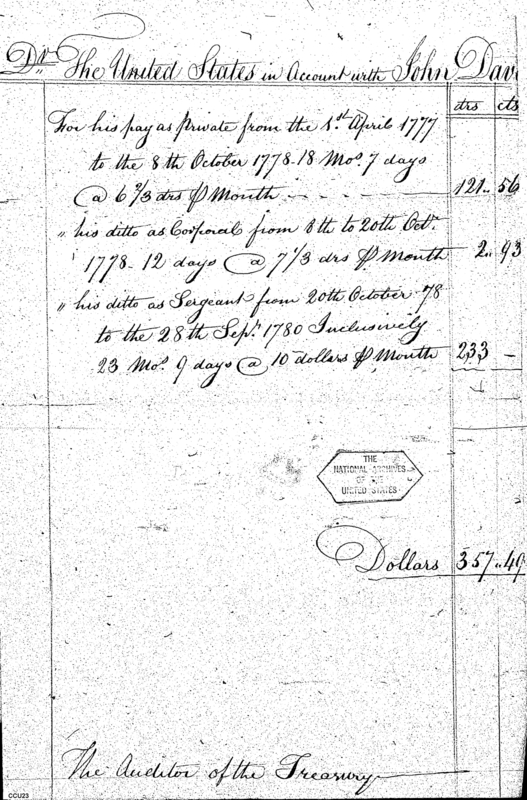 Dr. The United States in Account with John Dav
drs cts
For his pay as Private from the 1st April 1777
to the 8th October 1778. 18 Mos. 7 days
@ 6 2/3 drs ⅌ Month 121.. 56
" his ditto as Corporal from 8th to 20th Octr.
1778. 12 days @ 7 1/3 drs ⅌ Month 2.. 93
" his ditto as Sergeant from 20th October 78
to the 28th Sepr. 1780 Inclusively
23 Mos. 9 days @ 10 dollars ⅌ Month 233 –
THE
NATIONAL ARCHIVES
OF THE
UNITED STATES
Dollars 357.. 49
The Auditor of the Treasury
CCU23